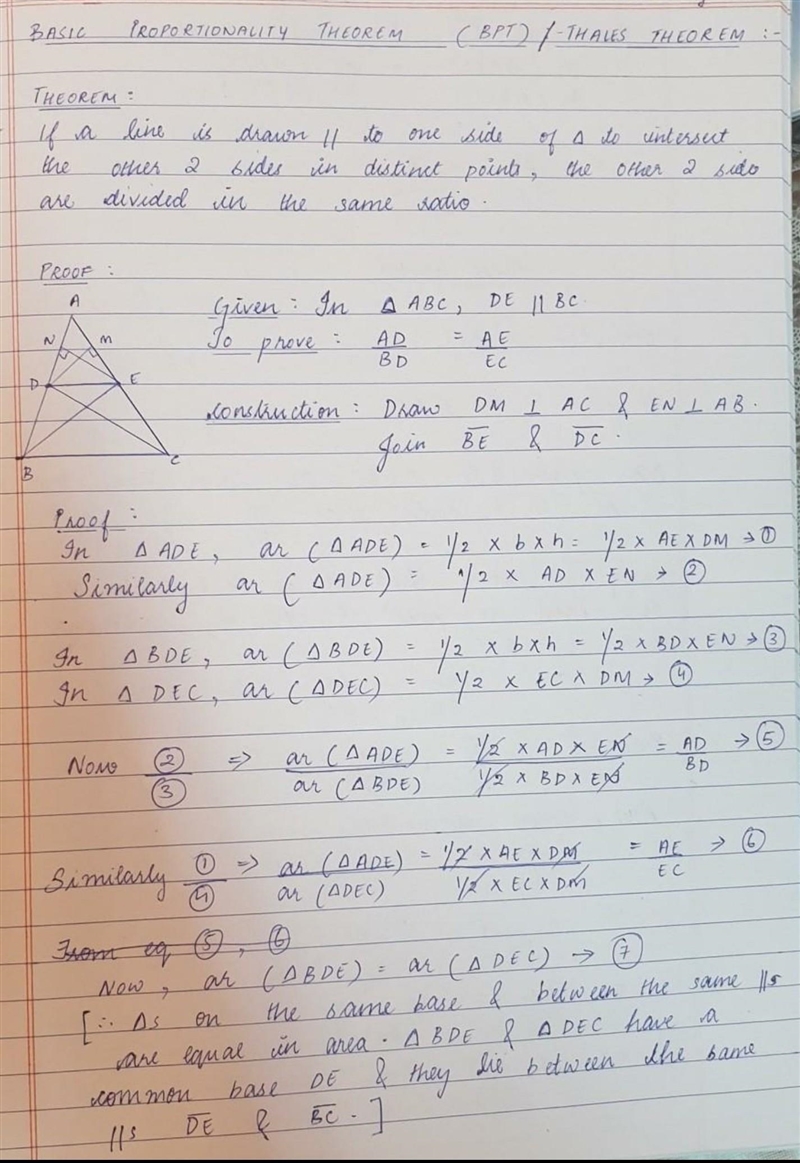 BASIC PROPORTIONALITY THEOREM (BPT) / THALES THEOREM :-
THEOREM :
If a line is drawn || to one side of Δ to intersect
the other 2 sides in distinct points, the other 2 side
are divided in the same ratio.
PROOF :
A
N M
D E
B C
Given : In Δ ABC, DE || BC.
To prove : AD/BD = AE/EC
Construction : Draw DM ⊥ AC & EN ⊥ AB.
Join B̅E̅ & D̅C̅.
Proof :
In Δ ADE, ar (Δ ADE) = 1/2 × b × h = 1/2 × AE × DM → ①
Similarly ar (Δ ADE) = 1/2 × AD × EN → ②
In Δ BDE, ar (Δ BDE) = 1/2 × b × h = 1/2 × BD × EN → ③
In Δ DEC, ar (Δ DEC) = 1/2 × EC × DM → ④
Now ②/③ => ar (Δ ADE)/ar (Δ BDE) = 1/2 × AD × EN/1/2 × BD × EN = AD/BD → ⑤
Similarly ①/④ => ar (Δ ADE)/ar (Δ DEC) = 1/2 × AE × DM/1/2 × EC × DM = AE/EC → ⑥
From eq ⑤, ⑥
Now, ar (Δ BDE) = ar (Δ DEC) → ⑦
[∴ Δs on the same base & between the same ||s
are equal in area. Δ BDE & Δ DEC have a
common base DE & they lie between the same
||s D̅E̅ & B̅C̅.]